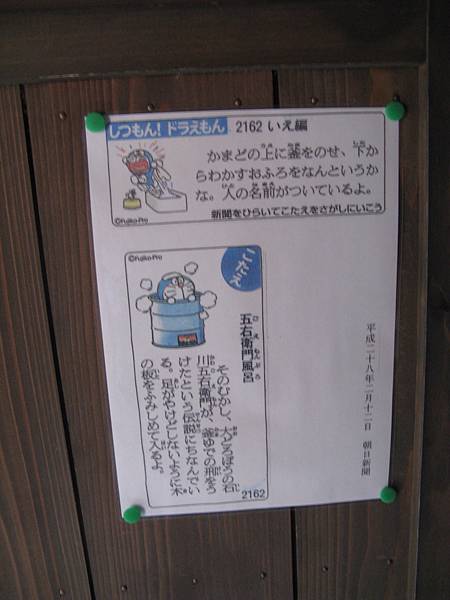 しつもん! ドラえもん 2162 いえ編
かまどの上に釜をのせ、下か
らわかすおふろをなんというか
な。人の名前がついているよ。
新聞をひらいてこたえをさがしにいこう
©Fujiko-Pro
©Fujiko-Pro
こたえ
五右衛門風呂
そのむかし、大どろぼうの石
川五右衛門が、釜ゆでの刑をう
けたという伝説にちなんでい
る。足がやけどしないように木
の板をふみしめて入るよ。
2162
平成二十八年二月十二日 朝日新聞